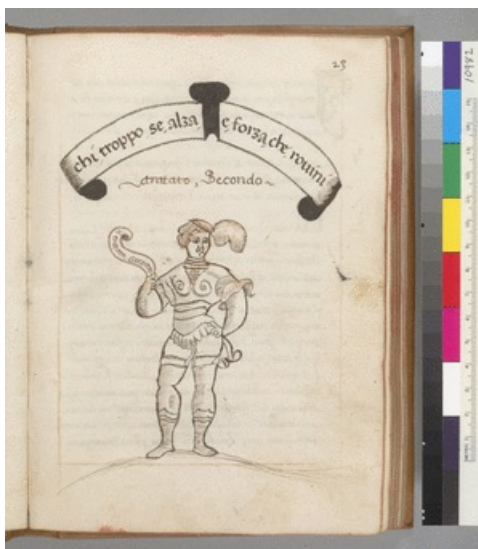 23
chi troppo se alza e forza che rovini
tratato, Secondo
10982